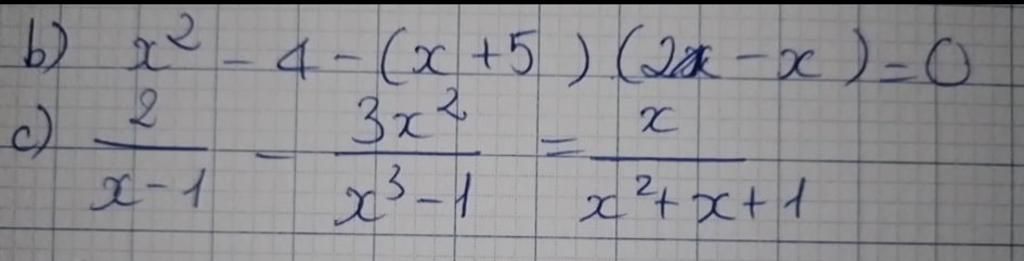 b) x² - 4 - (x + 5) (2x - x) = 0
c) 2/(x - 1) - 3x²/(x³ - 1) = x/(x² + x + 1)